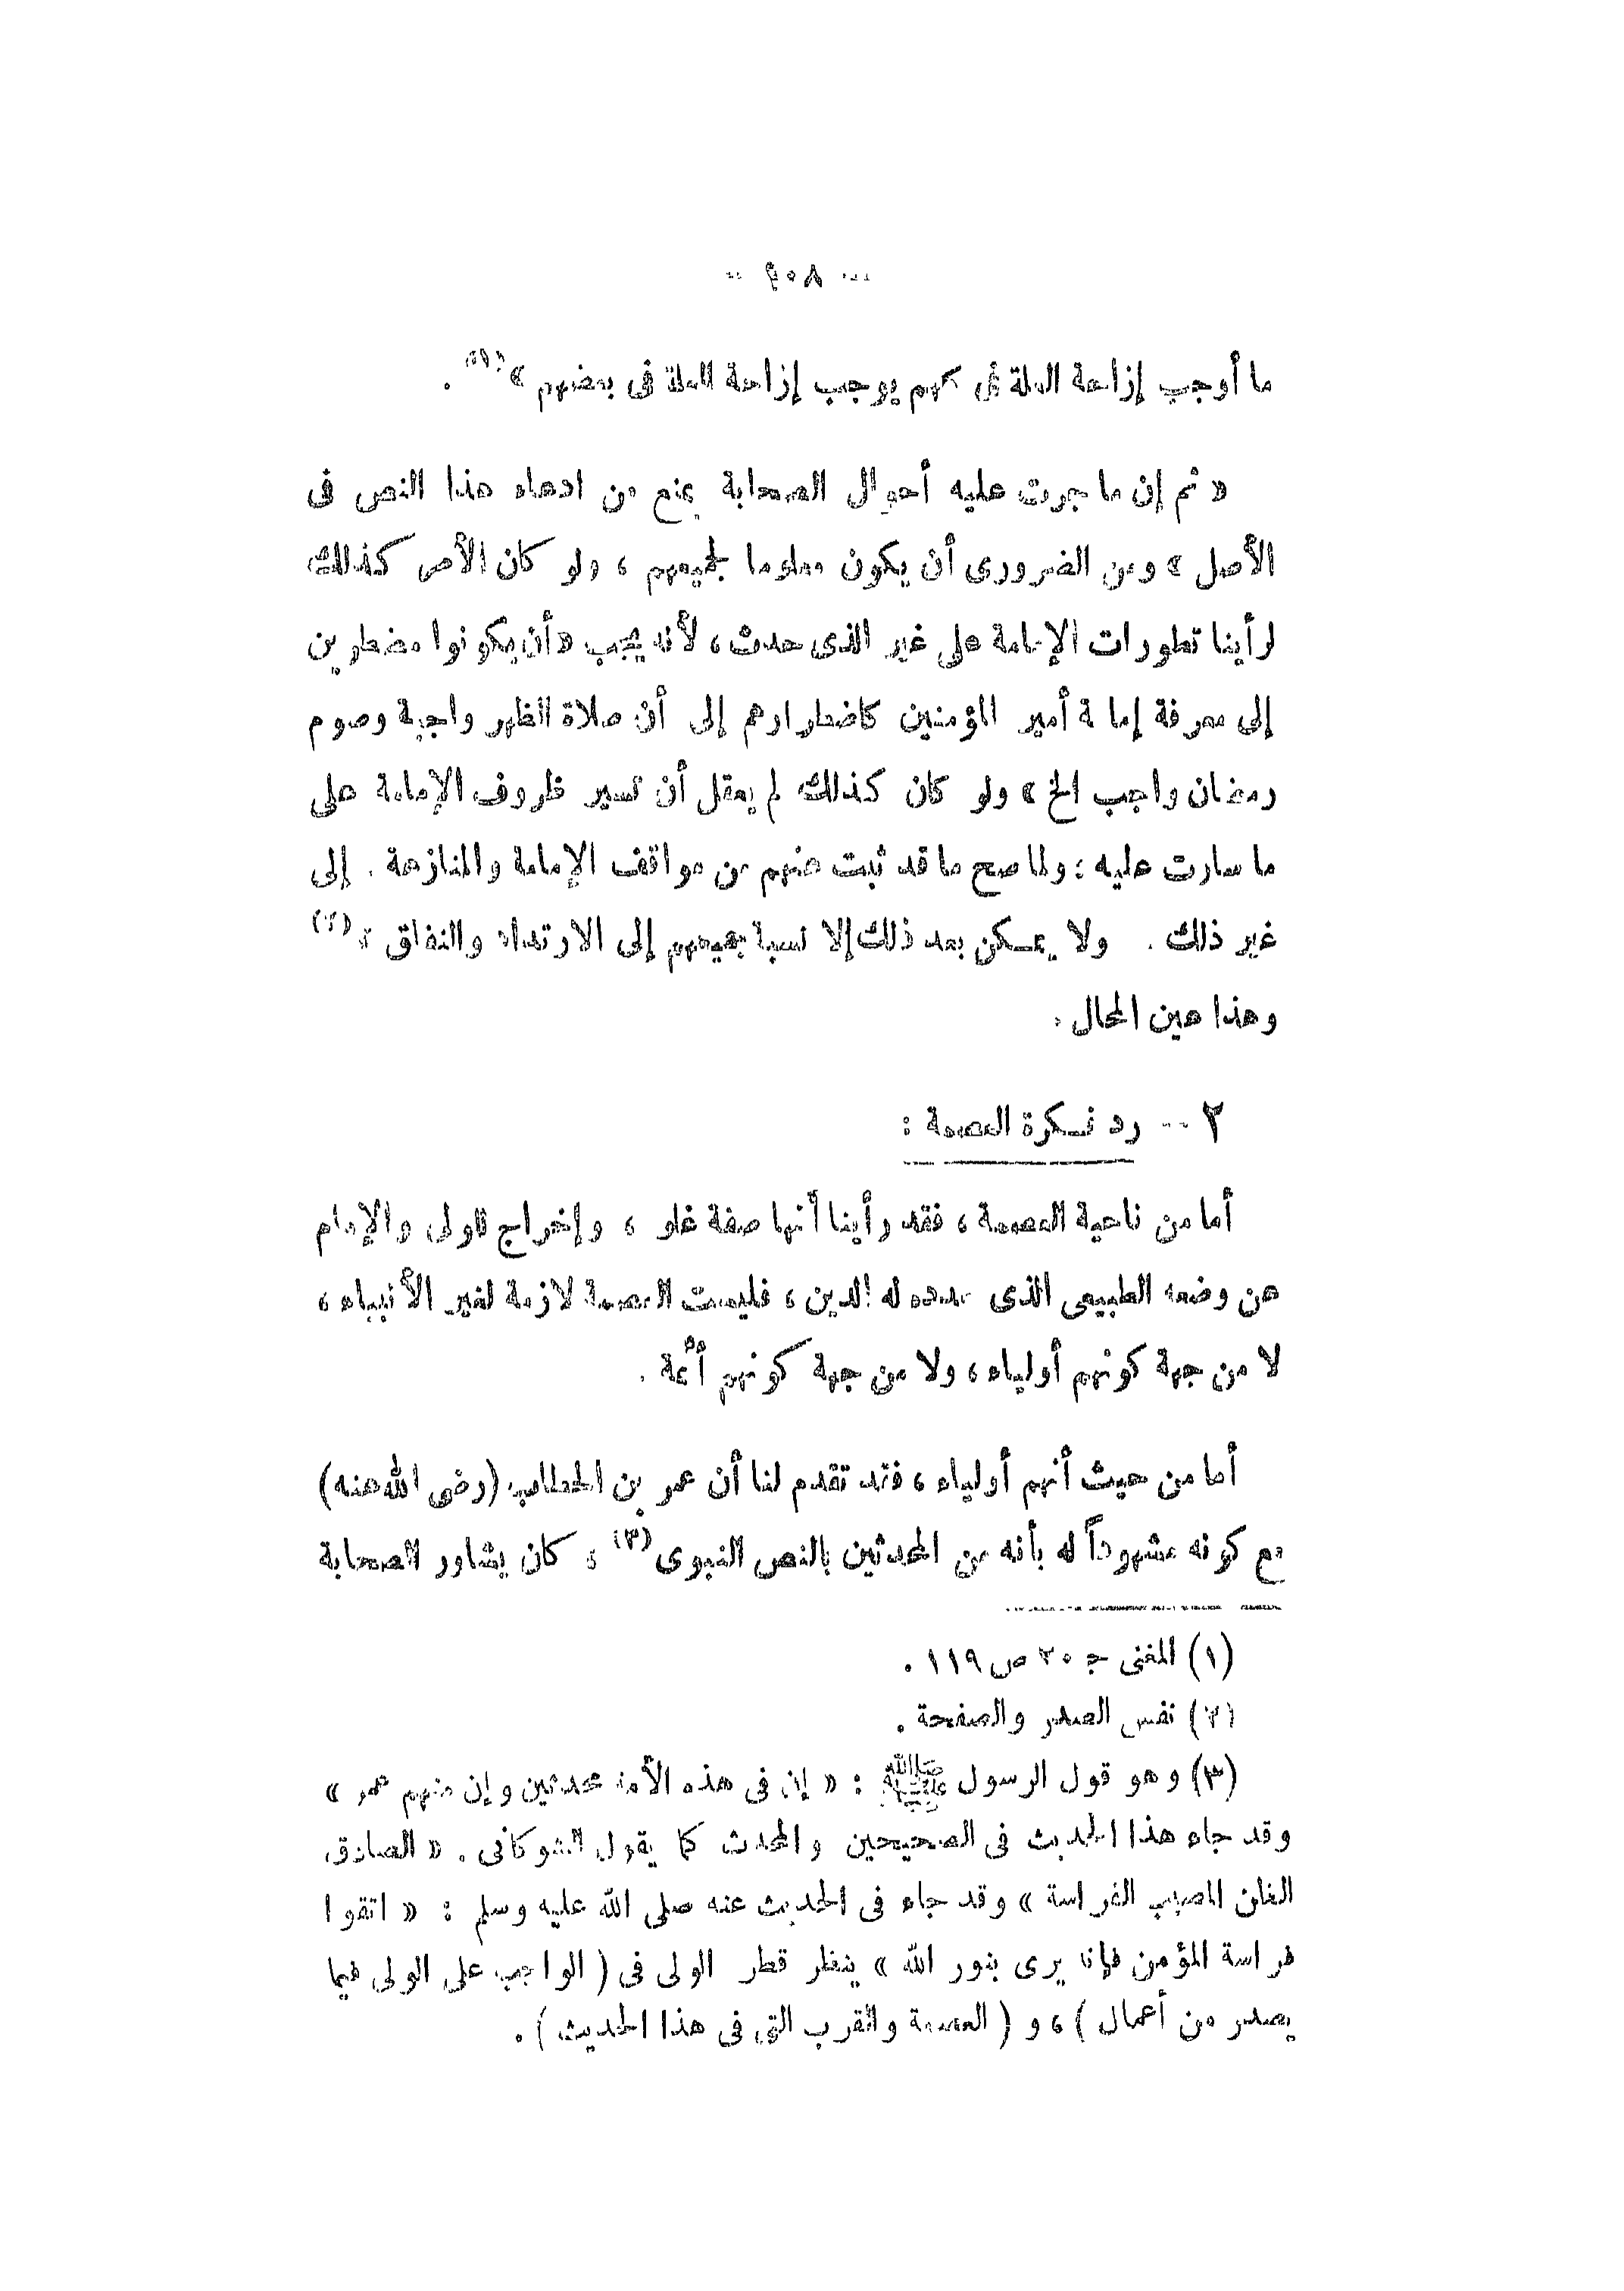 ما أوجب إزاحة العلة فى كلهم يوجب إزاحة العلة فى بعضهم » (١) .
« ثم إن ما جرت عليه أحوال الصحابة يمنع من ادعاء هذا النص فى
الأصل » ومن الضرورى أن يكون معلوما لجميعهم ، ولو كان الأمر كذلك
لرأينا تطورات الإمامة على غير الذى حدث ، لأنه يجب « أن يكونوا مضطرين
إلى معرفة إمامة أمير المؤمنين كاضطرارهم إلى أن صلاة الظهر واجبة وصوم
رمضان واجب الخ » ولو كان كذلك لم يعقل أن تسير ظروف الإمامة على
ما سارت عليه ؛ ولما صح ما قد ثبت عنهم من مواقف الإمامة والمنازعة . إلى
غير ذلك . ولا يمكن بعد ذلك إلا نسبة جميعهم إلى الارتداد والنفاق ؛ (٢)
وهذا عين المحال .
٢ -- رد فكرة العصمة :
أما من ناحية العصمة ، فقد رأينا أنها صفة غلو ، وإخراج للولى والإمام
عن وضعه الطبيعى الذى حدده له الدين ، فليست العصمة لازمة لغير الأنبياء ،
لا من جهة كونهم أولياء ، ولا من جهة كونهم أئمة .
أما من حيث أنهم أولياء ، فقد تقدم لنا أن عمر بن الخطاب (رضى الله عنه)
مع كونه مشهوداً له بأنه من المحدثين بالنص النبوى (٣) ، كان يشاور الصحابة
(١) المغنى جـ ٢٠ ص ١١٩ .
(٢) نفس المصدر والصفحة .
(٣) وهو قول الرسول ﷺ : « إن فى هذه الأمة محدثين وإن منهم عمر »
وقد جاء هذا الحديث فى الصحيحين والمحدث كما يقول الشوكانى . « الصادق
الظن المصيب الفراسة » وقد جاء فى الحديث عنه صلى الله عليه وسلم : « اتقوا
فراسة المؤمن فإنه يرى بنور الله » ينظر قطر الولى فى ( الواجب على الولى فيما
يصدر من أعمال ) ، و ( العصمة والقرب التى فى هذا الحديث ) .